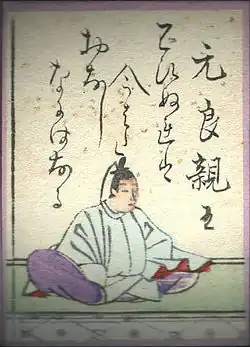 元良親王
わびぬれば
今はた
おなじ
なにはなる